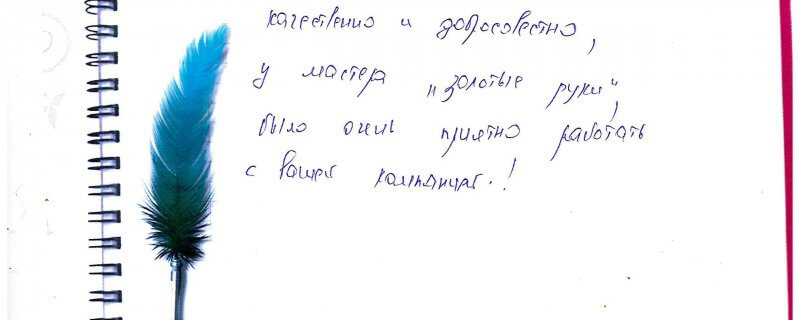 качественно и добросовестно,
у мастера "золотые руки",
было очень приятно работать
с вашей компанией.!